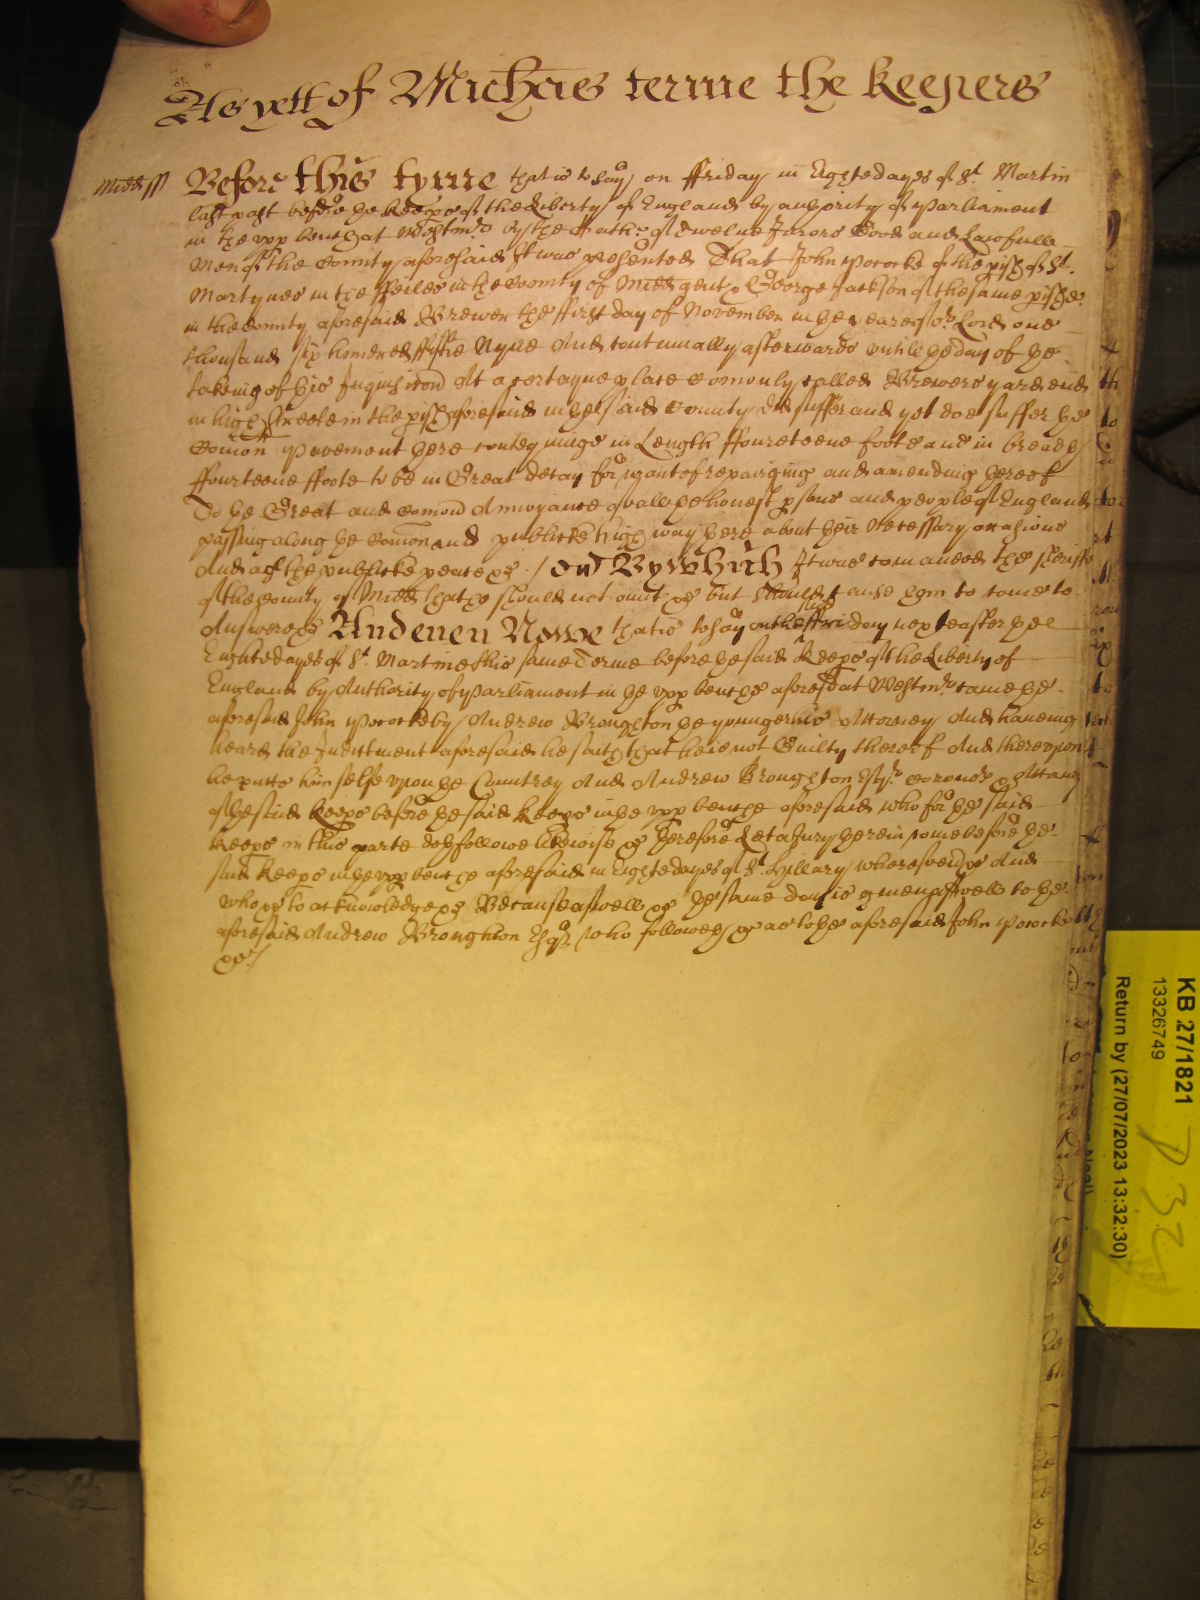 As yett of Michas terme the keepers
Midd ss Before this tyme that is to say on ffriday in Eightedayes of St. Martin
last past before ye keeps of the Liberty of England by authority of Parliament
in the upp bench at Westmr by the oathe of twelve Jurors Good and Lawfull
Men of the County aforesaid It was presented That John Pococke of the pish of St.
Martynes in the ffeildes in the County of Midd gent & George Jackson of the same pishe
in the County aforesaid Brewer the first day of November in ye yeare of or Lord one
thousand six hundred fiftie Nyne And contunually afterwards untill ye day of ye
takeing of this Inquisicon At a certayne place comonly called Brewers yard end
in high Streete in the pish aforesaid in ye said County did suffer and yet doe suffer ye
Comon pavement there conteyninge in Length ffoureteene foote and in breadth
ffourteene ffoote to be in Great decay for want of repairing and amending thereof
To ye Great and comon Annoyance of all ye honest psons and people of England
passing along ye comon and publicke high way there about their Necessary occasions
And agt the publicke peace &c / And By which It was comanded the Sheriffe
of the County of Midd that he should not omitt &c but should cause them to come to
Answere &c And enen Nowe that is to say on the ffriday next after ye
Eightedayes of St. Martine this same Terme before ye said Keeps of the Liberty of
England by Authority of Parliament in ye upp benche aforesd at Westmr came ye
aforesaid John Pococke by Andrew Broughton ye younger his Attorney And haveing
heard the Indictment aforesaid he saith that he is not Guilty thereof And thereupon
he putts himselfe upon ye Countrey And Andrew Broughton Esqr. Coronor & Attorny
of ye said Keeps before ye said Keeps in ye upp benche aforesaid who for ye said
Keeps in this parte doth followe likewise &c Therefore Let a Jury therein come before ye
said Keeps in ye upp benche aforesaid in Eightedayes of St. Hyllary wheresoever &c And
who &c to acknowledge &c Because aswell &c The same day is given aswell to ye
aforesaid Andrew Broughton Esqr who followeth &c as to ye aforesaid John Pococke
&c /
KB 27/1821
13326749
Return by (27/07/2023 13:32:30)